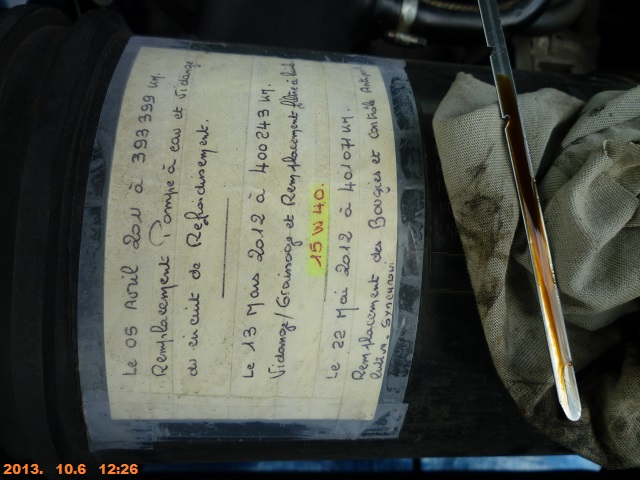 Le 05 Avril 2011 à 393 399 km.
Remplacement Pompe à eau et Vidange
du circuit de Refroidissement.
Le 13 Mars 2012 à 400 243 km.
Vidange/Graissage et Remplacement filtre à huile
15 W 40.
Le 22 Mai 2012 à 401071 km.
Remplacement des Bougies et Contrôle
2013. 10.6 12:26